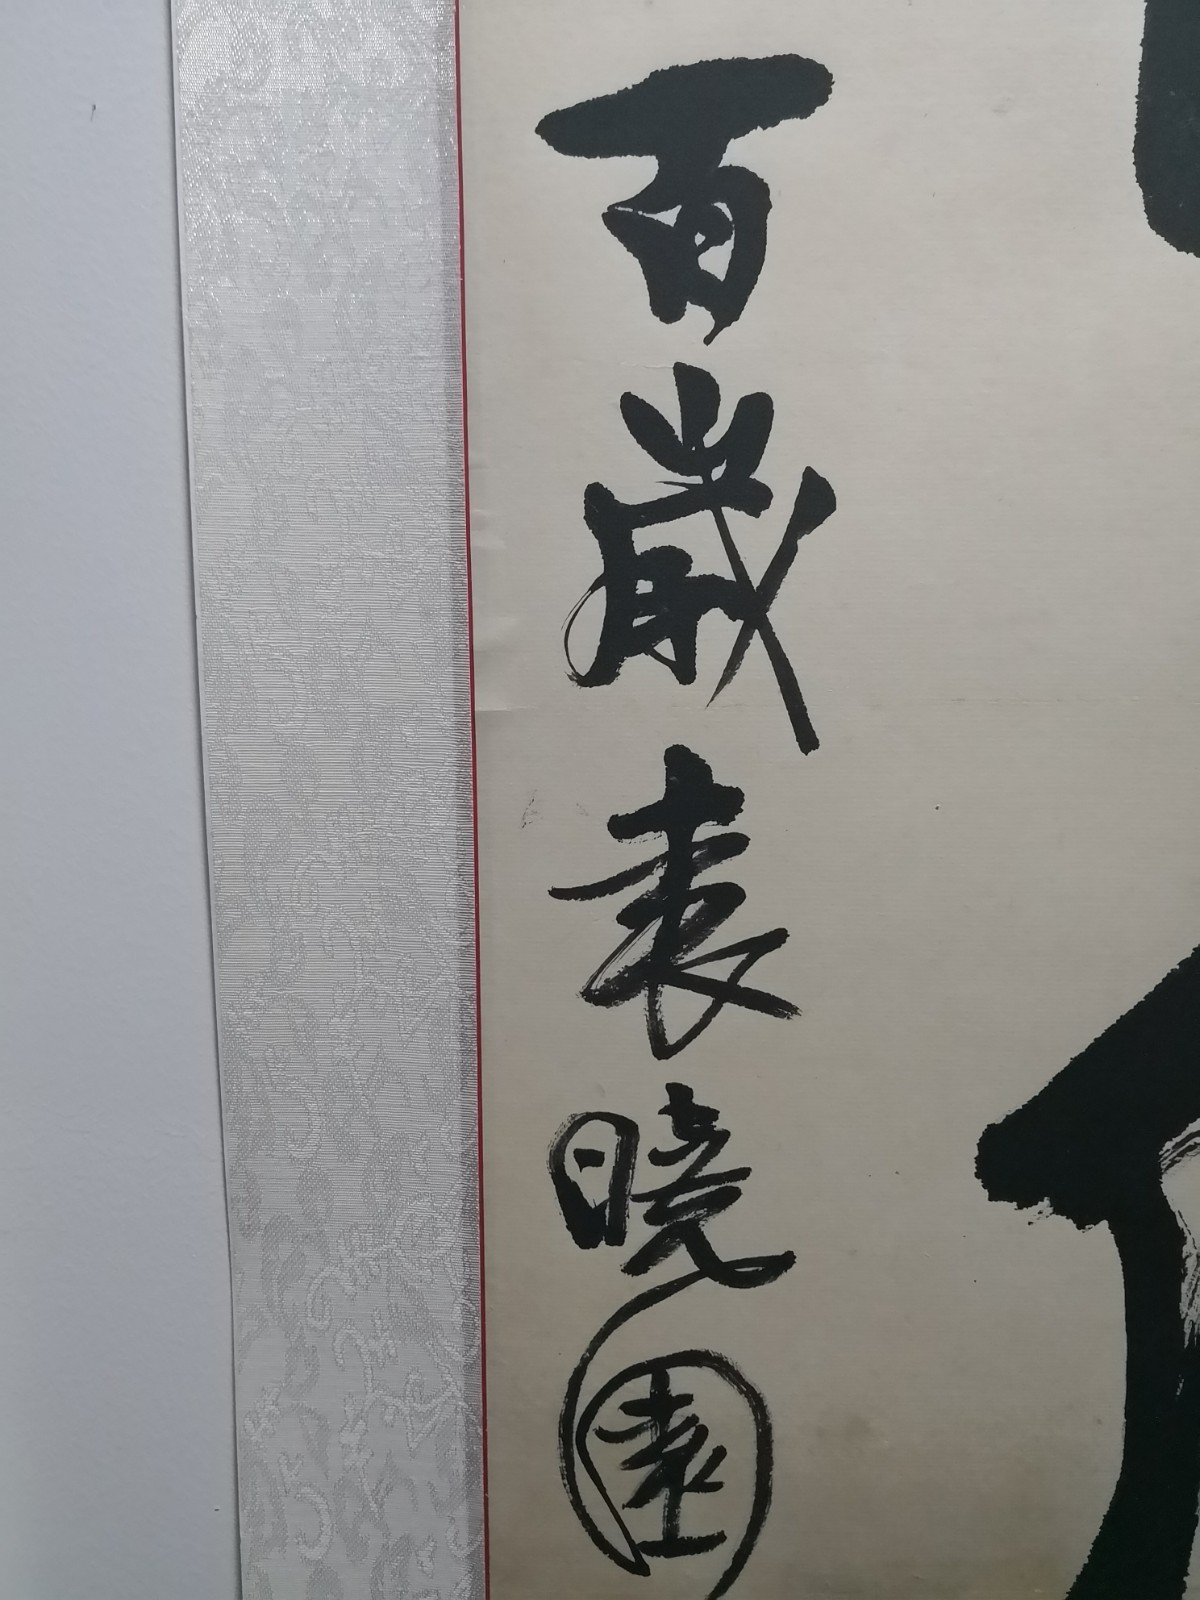 百歲袁曉園